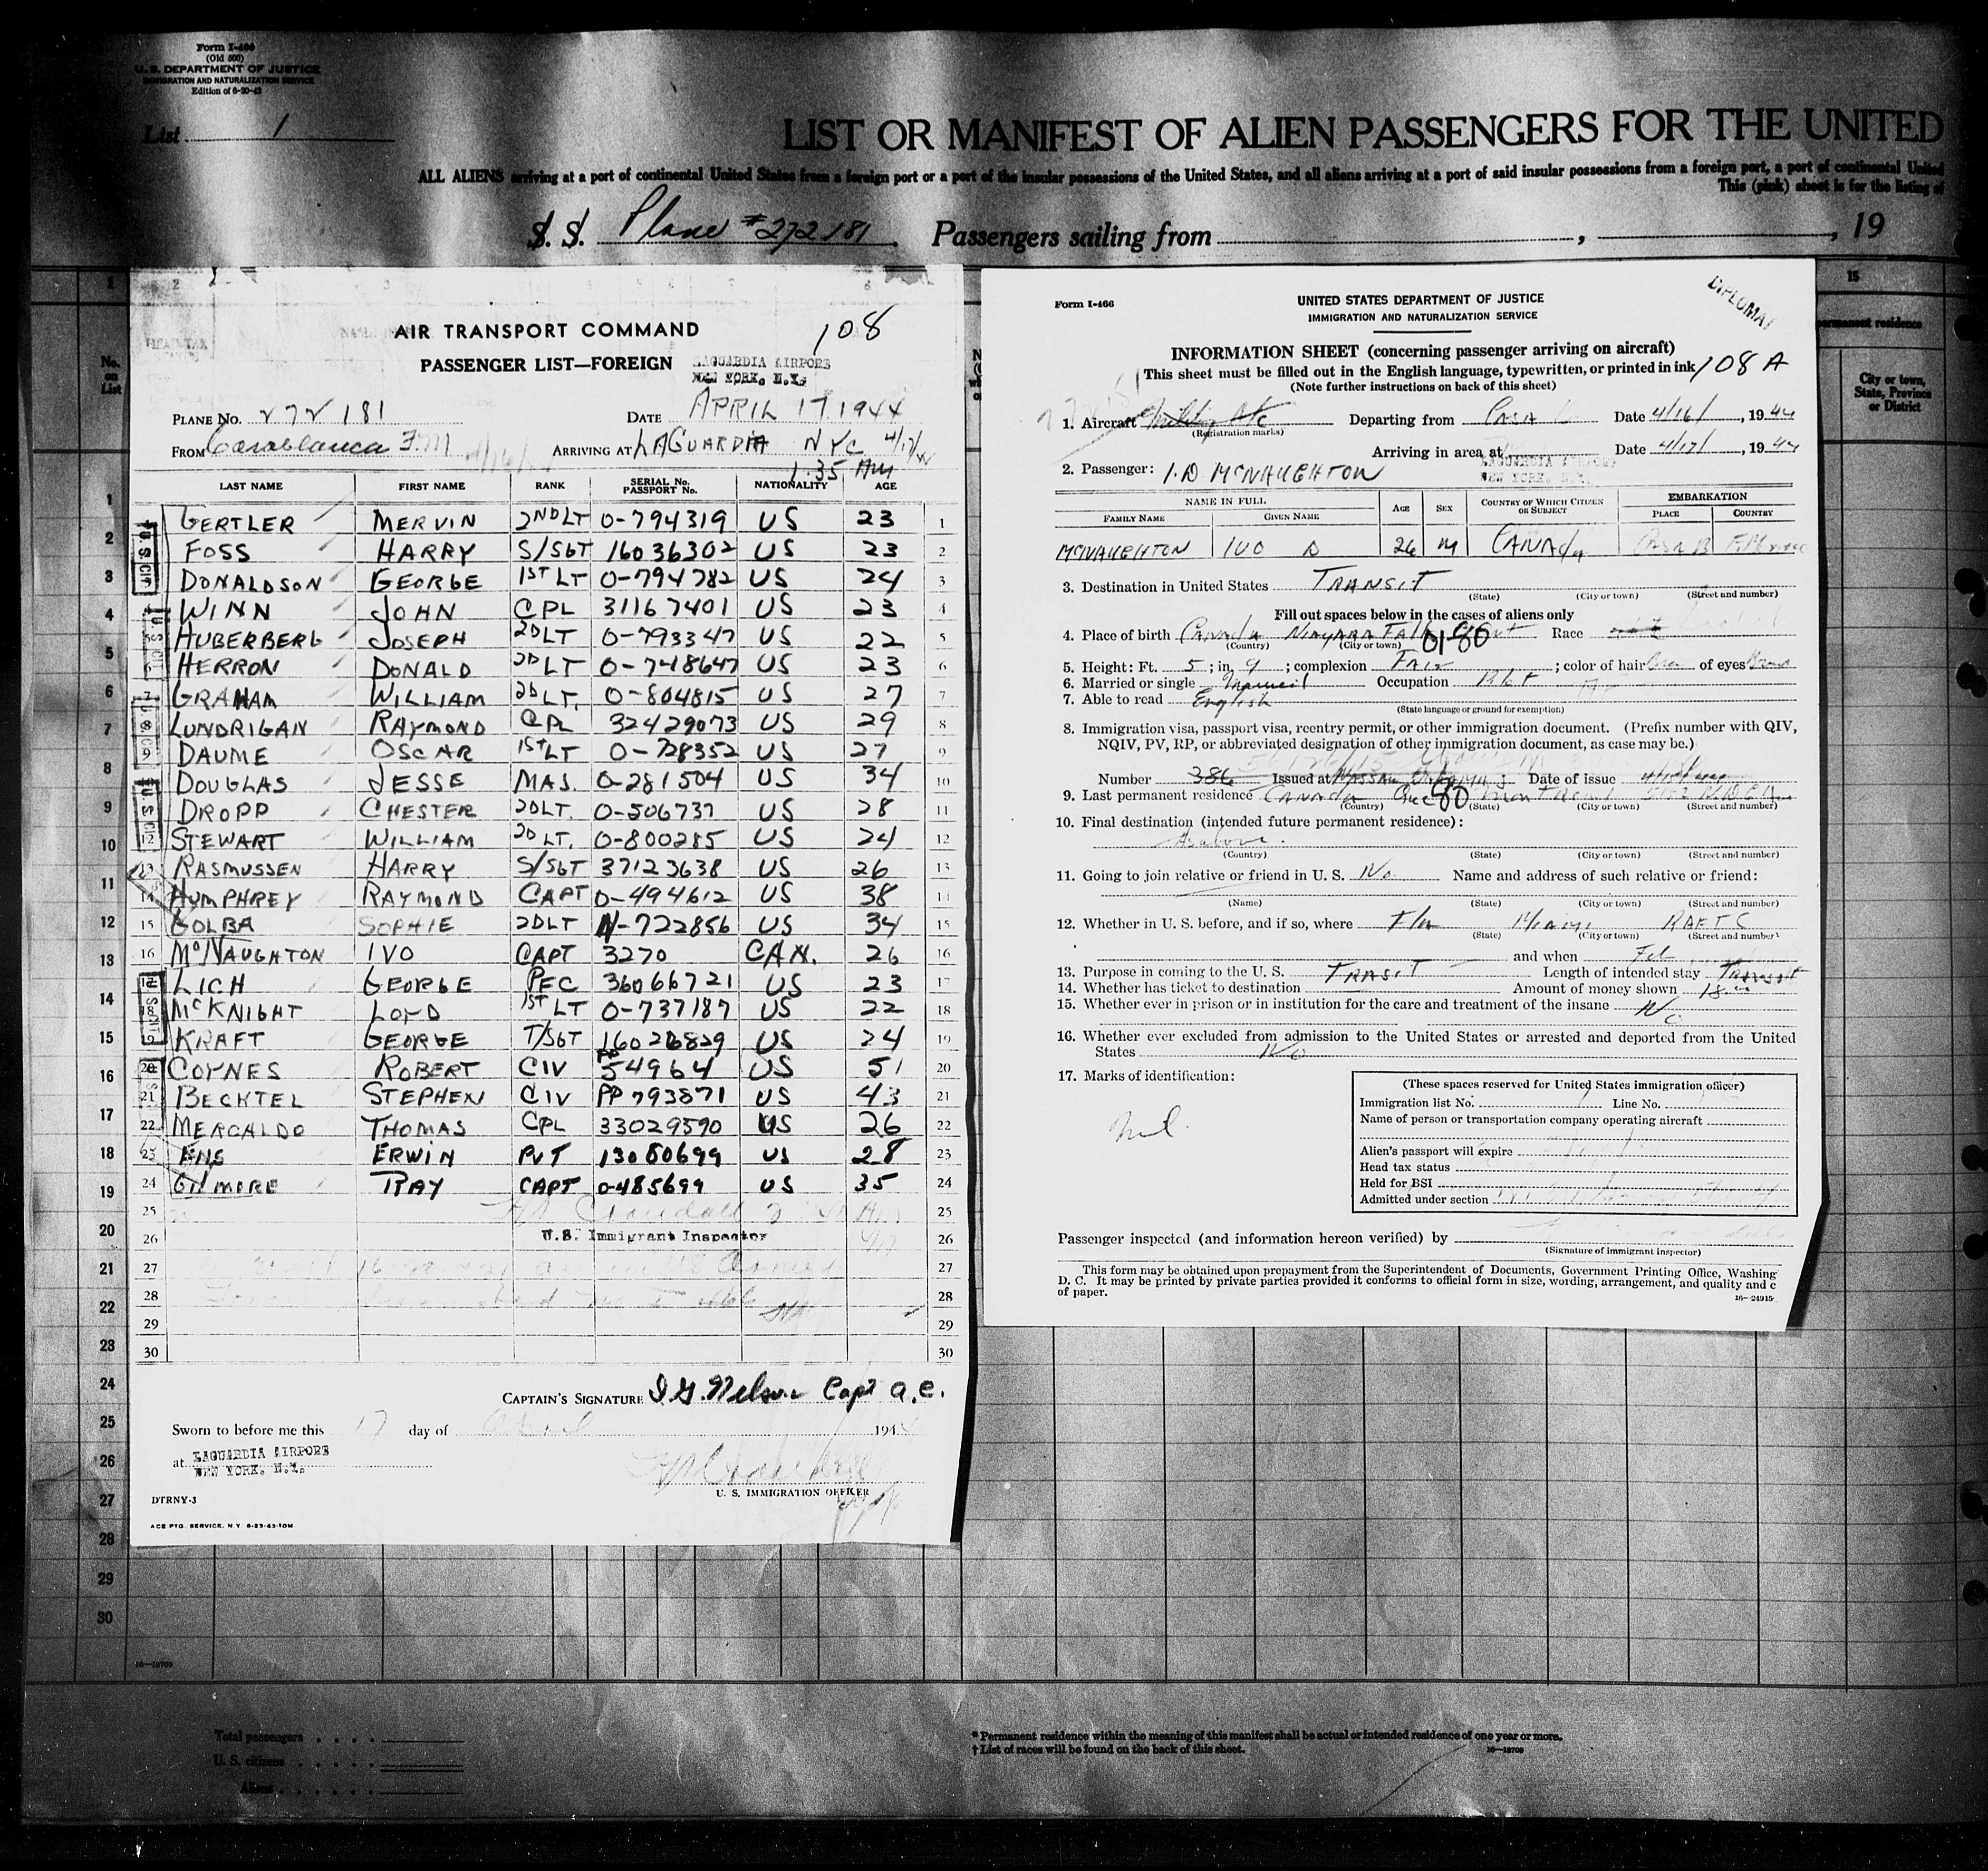 Form I-466
(Old 500)
U. S. DEPARTMENT OF JUSTICE
IMMIGRATION AND NATURALIZATION SERVICE
Edition of 6-20-42
List 1
LIST OR MANIFEST OF ALIEN PASSENGERS FOR THE UNITED
ALL ALIENS arriving at a port of continental United States from a foreign port or a port of the insular possessions of the United States, and all aliens arriving at a port of said insular possessions from a foreign port, a port of continental United
This (pink) sheet is for the listing of
S. S. Plane #272181. Passengers sailing from , , 19
AIR TRANSPORT COMMAND 108
PASSENGER LIST—FOREIGN
LAGUARDIA AIRPORT
NEW YORK, N.Y.
PLANE No. 272181 DATE APRIL 17 1944
FROM Casablanca F.M ARRIVING AT LAGUARDIA NYC 4/17/44
1:35 AM
LAST NAME FIRST NAME RANK SERIAL No. PASSPORT No. NATIONALITY AGE
GERTLER MERVIN 2ND LT O-794319 US 23 1
FOSS HARRY S/SGT 16036302 US 23 2
DONALDSON GEORGE 1ST LT O-794782 US 24 3
WINN JOHN CPL 31167401 US 23 4
HUBERBERG JOSEPH 2D LT O-793347 US 22 5
HERRON DONALD 2D LT O-748647 US 23 6
GRAHAM WILLIAM 2D LT. O-804815 US 27 7
LUNDRIGAN RAYMOND CPL 32429073 US 29 8
DAUME OSCAR 1ST LT O-728352 US 27 9
DOUGLAS JESSE MAJ. O-281504 US 34 10
DROPP CHESTER 2D LT. O-506737 US 28 11
12 STEWART WILLIAM 2D LT. O-800285 US 24 12
13 RASMUSSEN HARRY S/SGT 37123638 US 26 13
14 HUMPHREY RAYMOND CAPT O-494612 US 38 14
15 GOLBA SOPHIE 2D LT N-722856 US 34 15
16 McNAUGHTON IVO CAPT 3270 CAN. 26 16
LICH GEORGE PFC 36066721 US 23 17
McKNIGHT LOYD 1ST LT O-737187 US 22 18
KRAFT GEORGE T/SGT 16026829 US 24 19
20 COYNES ROBERT CIV PP 54964 US 51 20
21 BECHTEL STEPHEN CIV PP 793871 US 43 21
22 MERCALDO THOMAS CPL 33029570 US 26 22
23 ENG ERWIN PVT 13080699 US 28 23
24 GILMORE RAY CAPT O-485699 US 35 24
25 25
26 U.S. Immigrant Inspector 4/17 26
27 27
28 28
29 29
30 30
CAPTAIN'S SIGNATURE I. G. Nelson Capt A.C.
Sworn to before me this 17 day of April 1944
at LAGUARDIA AIRPORT
NEW YORK, N.Y.
U. S. IMMIGRATION OFFICER
DTRNY-3
ACE PTG. SERVICE, N.Y. 6-23-43-10M
Form I-466
UNITED STATES DEPARTMENT OF JUSTICE
IMMIGRATION AND NATURALIZATION SERVICE
DIPLOMAT
INFORMATION SHEET (concerning passenger arriving on aircraft)
This sheet must be filled out in the English language, typewritten, or printed in ink 108 A
(Note further instructions on back of this sheet)
1. Aircraft Departing from CASA Date 4/16/, 1944
(Registration marks)
Arriving in area at LAGUARDIA AIRPORT NEW YORK, N.Y. Date 4/17/, 1944
2. Passenger: I. D McNAUGHTON
NAME IN FULL AGE SEX COUNTRY OF WHICH CITIZEN OR SUBJECT EMBARKATION
FAMILY NAME GIVEN NAME PLACE COUNTRY
McNAUGHTON IVO D 26 M CANADA CASA B F. Morocco
3. Destination in United States TRANSIT
(State) (City or town) (Street and number)
Fill out spaces below in the cases of aliens only
4. Place of birth Canada Niagara Falls Ont Race
(Country) (City or town) 01-80
5. Height: Ft. 5; in. 9; complexion FAIR; color of hair Brn of eyes Brown
6. Married or single Married Occupation Pilot
7. Able to read English
(State language or ground for exemption)
8. Immigration visa, passport visa, reentry permit, or other immigration document. (Prefix number with QIV,
NQIV, PV, RP, or abbreviated designation of other immigration document, as case may be.)
Number 386 Issued at Nassau Bahamas Date of issue
9. Last permanent residence CANADA Que 80 Montreal
(Country) (State) (City or town) (Street and number)
10. Final destination (intended future permanent residence):
(Country) (State) (City or town) (Street and number)
11. Going to join relative or friend in U. S. No Name and address of such relative or friend:
(Name) (State) (City or town) (Street and number)
12. Whether in U. S. before, and if so, where Fla Miami RAFTC
(State) (City or town) (Street and number)
and when Feb
13. Purpose in coming to the U. S. TRANSIT Length of intended stay Transit
14. Whether has ticket to destination Amount of money shown 15.00
15. Whether ever in prison or in institution for the care and treatment of the insane No
16. Whether ever excluded from admission to the United States or arrested and deported from the United
States No
17. Marks of identification:
nil.
(These spaces reserved for United States immigration officer)
Immigration list No. Line No.
Name of person or transportation company operating aircraft
Alien's passport will expire
Head tax status
Held for BSI
Admitted under section
Passenger inspected (and information hereon verified) by
(Signature of immigrant inspector)
This form may be obtained upon prepayment from the Superintendent of Documents, Government Printing Office, Washing
D. C. It may be printed by private parties provided it conforms to official form in size, wording, arrangement, and quality and c
of paper.
16—24915
15
permanent residence
City or town, State, Province or District
No. on List
1
2
3
4
5
6
7
8
9
10
11
12
13
14
15
16
17
18
19
20
21
22
23
24
25
26
27
28
29
30
16—19709
Total passengers
U. S. citizens
Aliens
* Permanent residence within the meaning of this manifest shall be actual or intended residence of one year or more.
† List of races will be found on the back of this sheet.
16—19709